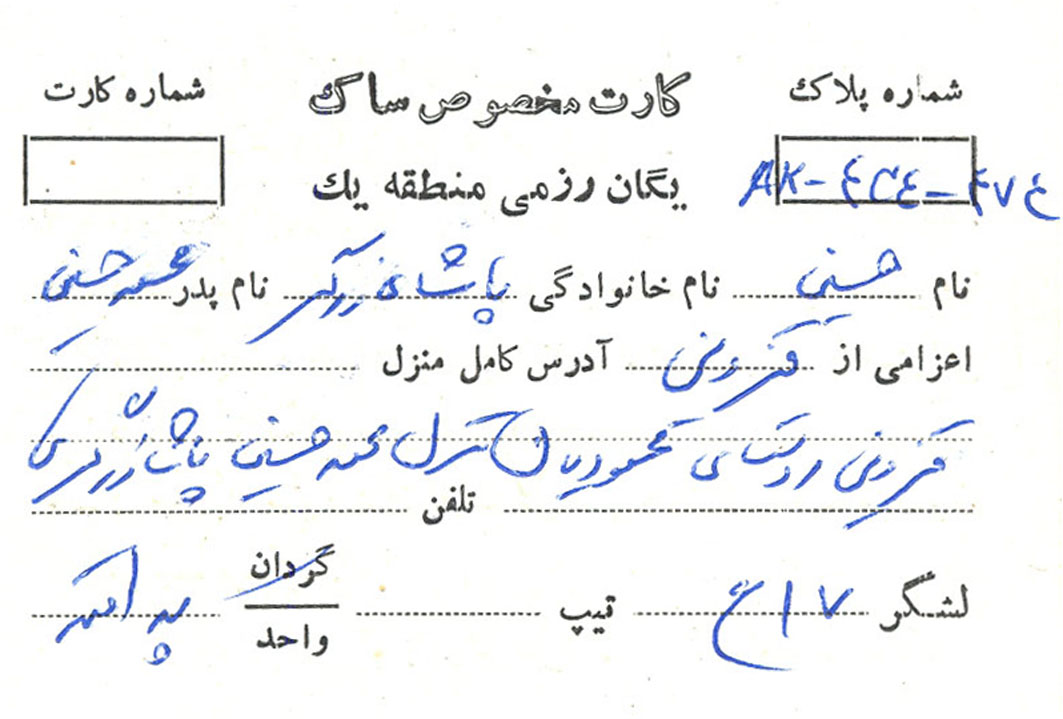 شماره پلاک کارت مخصوص ساک شماره کارت
AK-۴۲۴-۴۷۴ یگان رزمی منطقه یک
نام حسین نام خانوادگی پاشائی نام پدر محمد حسین
اعزامی از قزوین آدرس کامل منزل
قزوین روستای محمودیان منزل محمد حسین پاشائی
تلفن
لشگر ۱۷ ع تیپ گردان
واحد